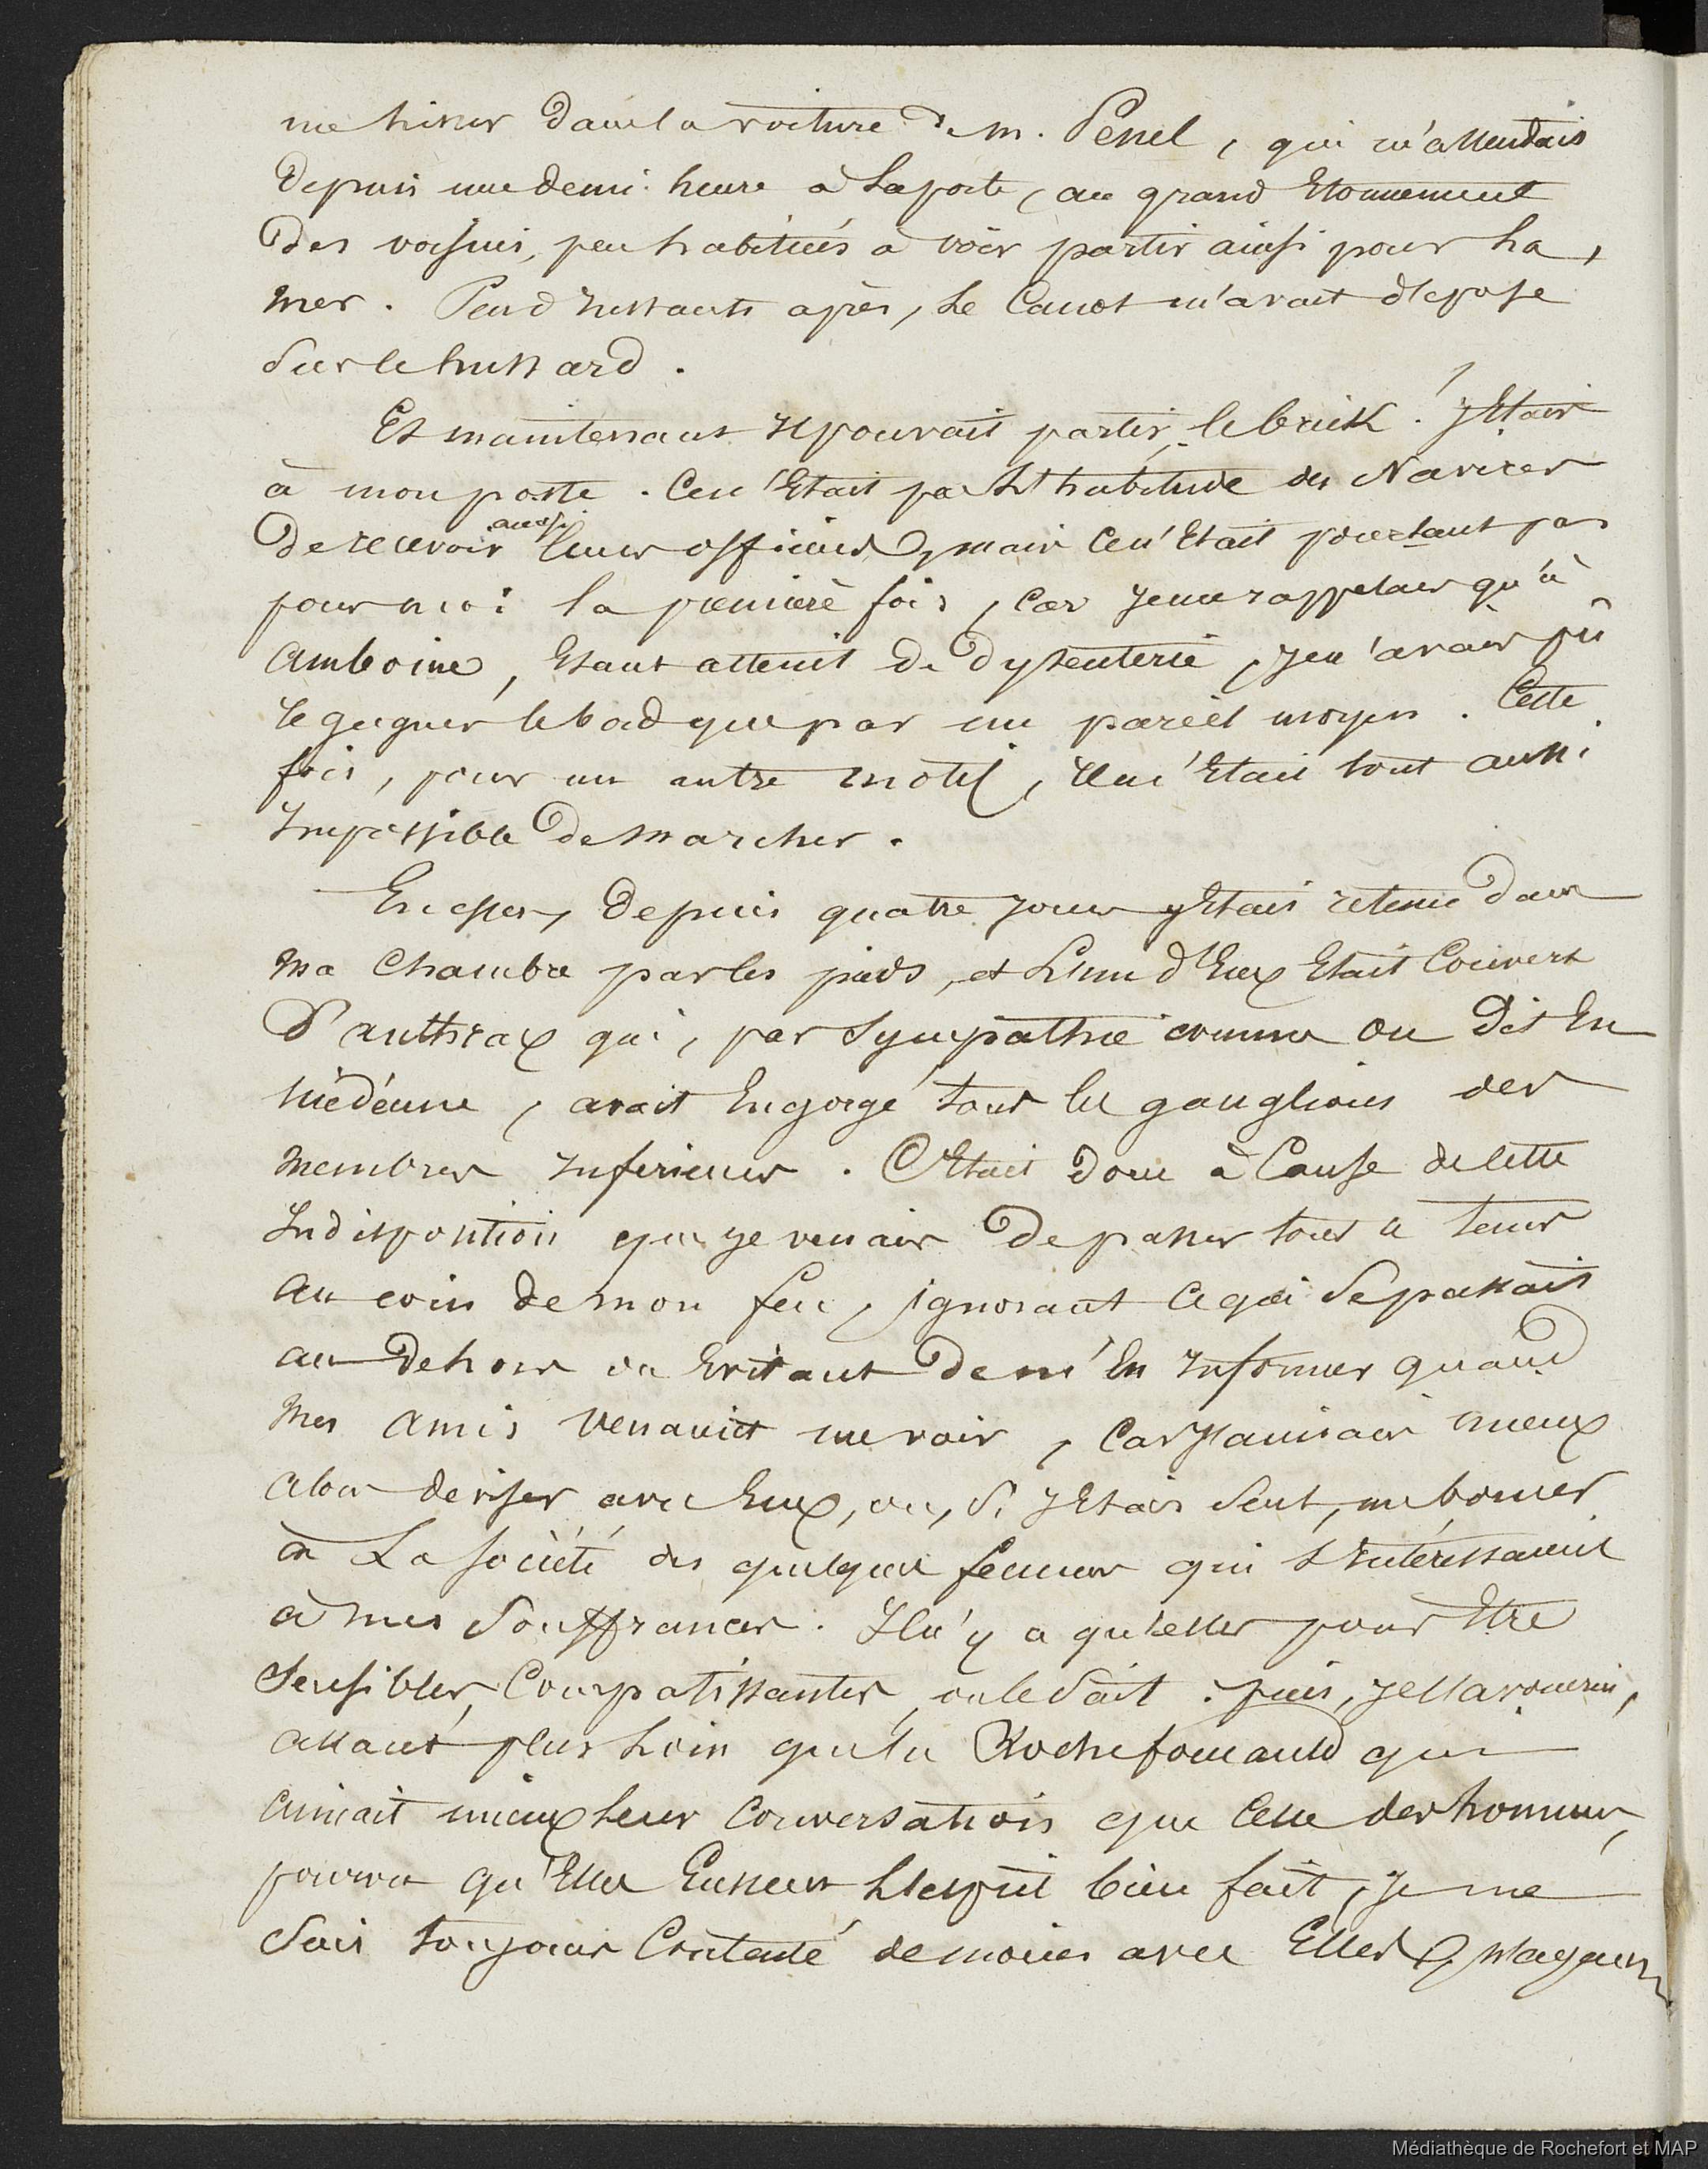 me hisser dans la voiture de m. Penel, qui m'attendais
depuis une demi heure à la porte, au grand Etonnement
Des voisins, peu habitués à voir partir ainsi pour la
mer. Peu d'Instants après, le Canot m'avait déposé
Sur le hussard.
Et maintenant Il pouvait partir, le brick ! J'Etais
à mon poste. Ce n'Etait pas L'habitude des Navires
De recevoir ainsi leurs officiers, mais Ce n'Etait pourtant pas
pour moi la première fois, Car Je me rappelais qu'à
Amboine, Etant atteint De Dysenterie, Je n'avais pû
regagner le bord que par un pareil moyen. Cette
fois, pour un autre motif, Il m'Etait tout aussi
Impossible De marcher.
En effet, Depuis quatre Jours j'Etais retenu Dans
ma Chambre par les pieds, et L'un d'Eux Etait Couvert
D'anthrax qui, par Sympathie comme on Dit En
médecine, avait Engorgé tous les ganglions des
membres Inferieurs. C'Etait Donc à Cause de cette
Indisposition que Je venais De passer tout ce tems
au coin de mon feu, ignorant ce qui Se passait
au Dehors ou Evitant De m'En Informer quand
mes amis Venaient me voir, Car J'aimais mieux
alors deviser avec Eux, ou, Si J'Etais Seul, me borner
à La Société des quelques femmes qui S'Intéressaient
à mes Souffrances. Il n'y a qu'elles pour Etre
Sensibles, Compatissantes, on le Sait. puis, Je L'avouerai,
allant plus Loin que La Rochefoucauld qui
aimait mieux Leur Conversation que Celle des hommes,
pourvu qu'Elles Eussent L'Esprit bien fait, Je me
Suis toujours Contenté de moins avec Elles,